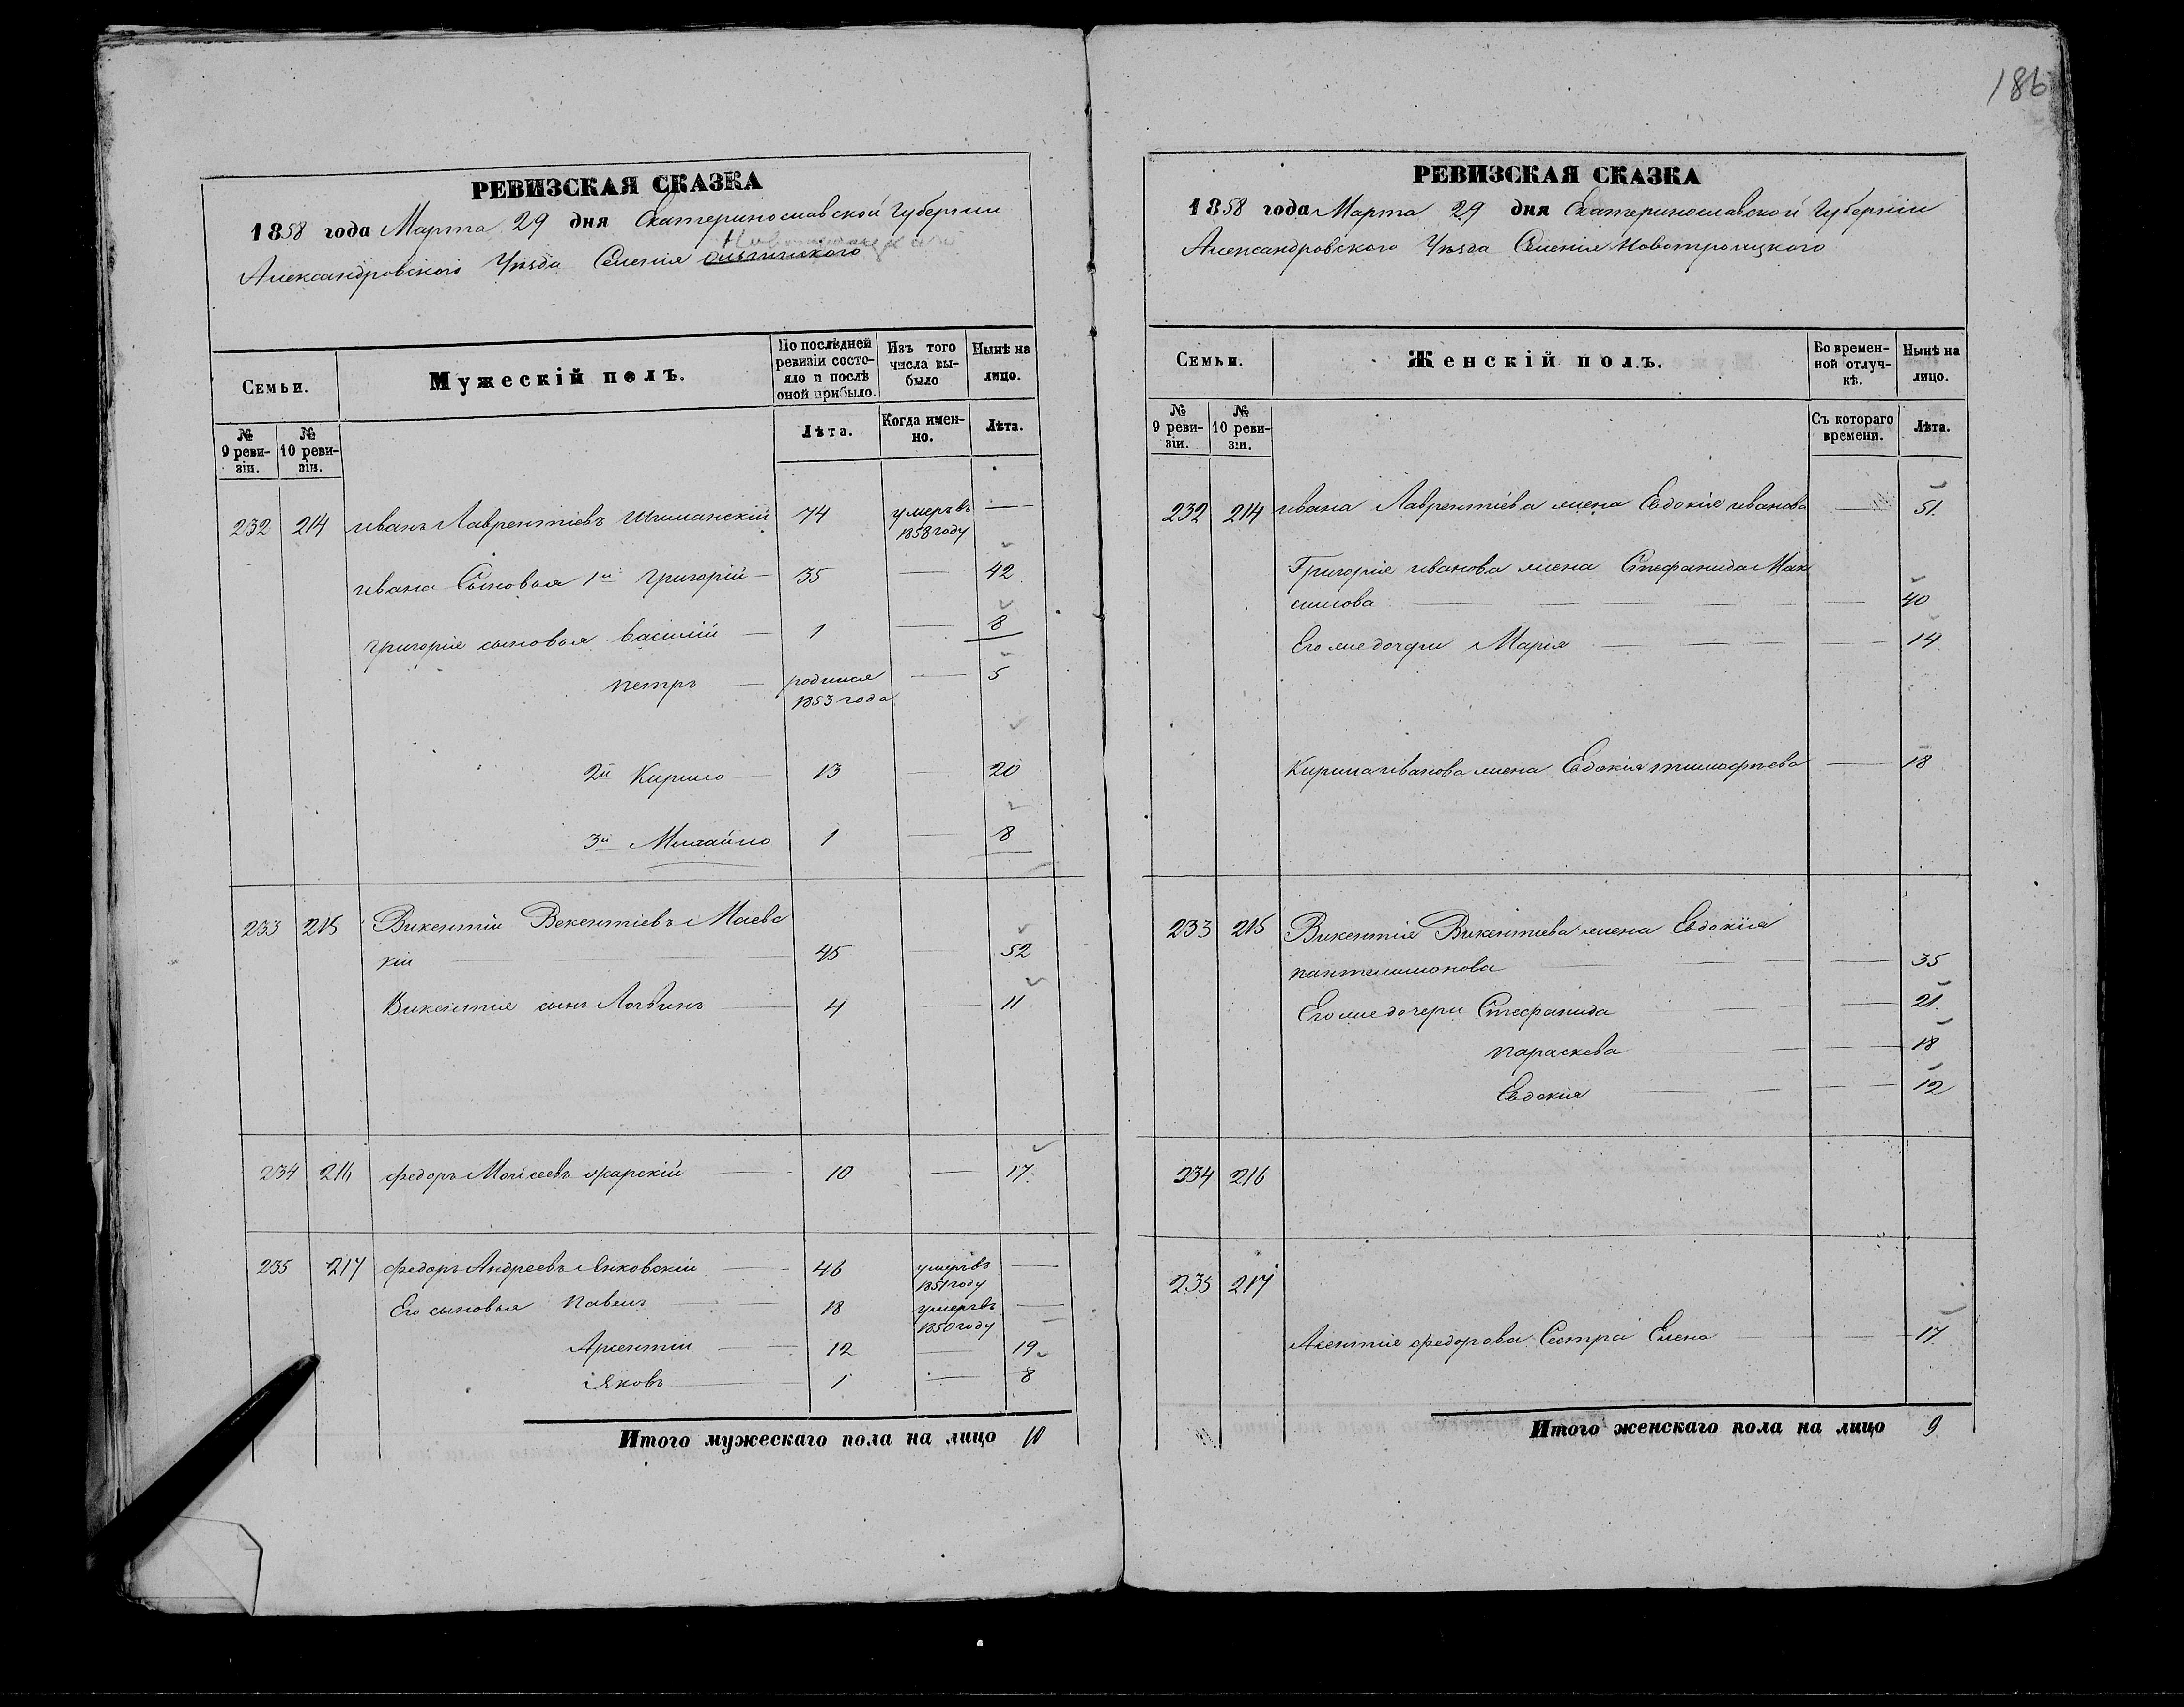 186
РЕВИЗСКАЯ СКАЗКА
1858 года Марта 29 дня Екатеринославской Губернии
Александровского Уѣзда Селенія
Семьи.
Мужескій полъ.
По послѣдней ревизіи состояло и послѣ оной прибыло.
Изъ того числа выбыло
Нынѣ на лицо.
№ 9 ревизіи.
№ 10 ревизіи.
Лѣта.
Когда именно.
Лѣта.
232 214 иванъ Лаврентіевъ Шиманскій 74 умеръ въ —
1858 году
ивана Сыновья 1й григорій — 35 — 42
григорія сыновья василій — 1 — 8
петръ — родился — 5
1853 года
2й Кирило — 13 — 20
3й Михайло 1 — 8
233 215 Викентіи Векентіевъ Маевс
кіи — 45 — 52
Викентія сынъ Логвинъ — 4 — 11
234 216 федоръ Моисеевъ жарскій — 10 — 17.
235 217 федоръ Андреевъ Янковскіи — 46 умеръ въ —
1851 году
Его сыновья павелъ — 18 умеръ въ —
1850 году
— 12 — 19
Яковъ — 1 — 8
Итого мужескаго пола на лицо 10
РЕВИЗСКАЯ СКАЗКА
1858 года Марта 29 дня Екатеринославской Губерніи
Александровского Уѣзда Селенія Новотроицкого
Семьи.
Женскій полъ.
Во временной отлучкѣ.
Нынѣ на лицо.
№ 9 ревизіи.
№ 10 ревизіи.
Съ котораго времени.
Лѣта.
232 214 ивана Лаврентіева жена Евдокія иванова — 51.
Григорія иванова жена Стефанида Мак
симова — 40
Его же дочери Марія — 14.
Кирила иванова жена Евдокія тимофѣева — 18
233 215 Викентія Викентиева жена Евдокія
пантелимонова — 35
Его же дочери Стефанида — 21.
параскева — 18
Евдокия — 12
234 216
235 217
федорова Сестра Елена — 17.
Итого женскаго пола на лицо 9